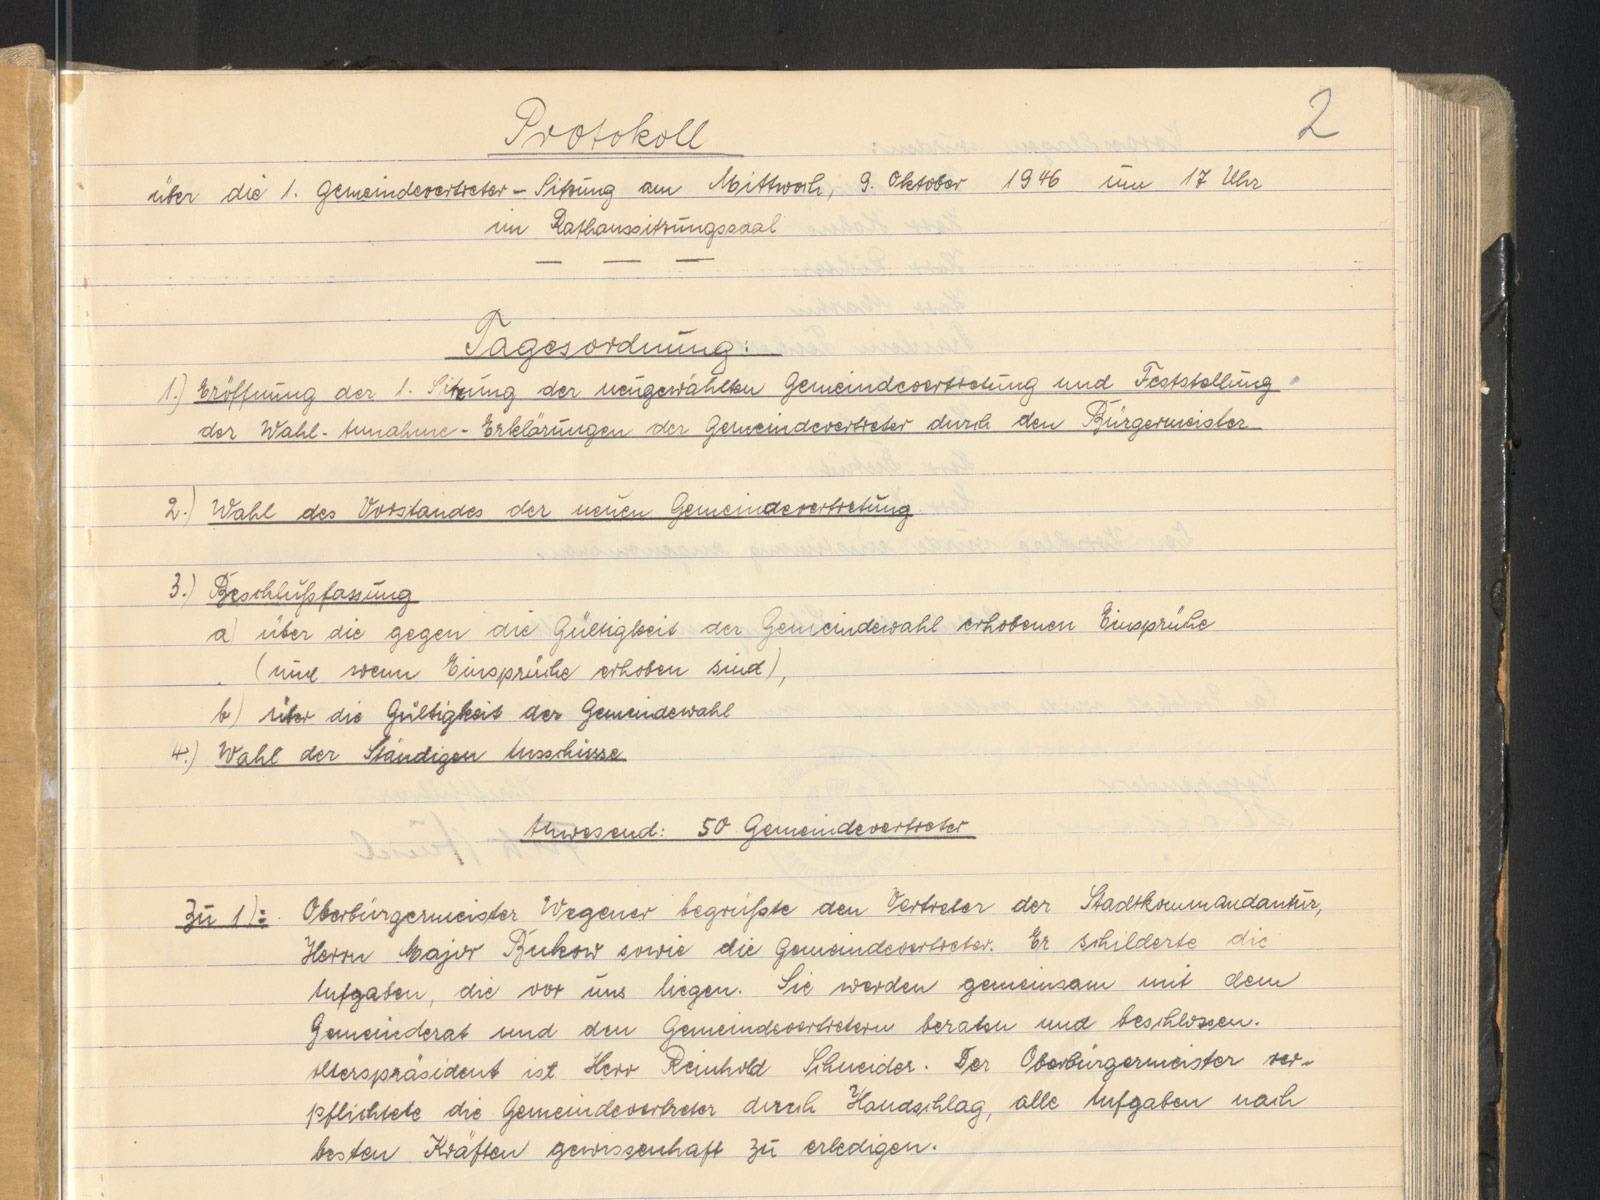 2
Protokoll
über die 1. Gemeindevertreter-Sitzung am Mittwoch, 9. Oktober 1946 um 17 Uhr
im Rathaussitzungssaal
Tagesordnung:
1.) Eröffnung der 1. Sitzung der neugewählten Gemeindevertretung und Feststellung
der Wahl-Annahme-Erklärungen der Gemeindevertreter durch den Bürgermeister
2.) Wahl des Vorstandes der neuen Gemeindevertretung
3.) Beschlußfassung
a) über die gegen die Gültigkeit der Gemeindewahl erhobenen Einsprüche
(nur wenn Einsprüche erhoben sind),
b) über die Gültigkeit der Gemeindewahl
4.) Wahl der Ständigen Ausschüsse
Anwesend: 50 Gemeindevertreter
Zu 1): Oberbürgermeister Wegener begrüßte den Vertreter der Stadtkommandantur,
Herrn Major Bukow sowie die Gemeindevertreter. Er schilderte die
Aufgaben, die vor uns liegen. Sie werden gemeinsam mit dem
Gemeinderat und den Gemeindevertretern beraten und beschlossen.
Alterspräsident ist Herr Reinhold Schneider. Der Oberbürgermeister ver-
pflichtete die Gemeindevertreter durch Handschlag, alle Aufgaben nach
besten Kräften gewissenhaft zu erledigen.